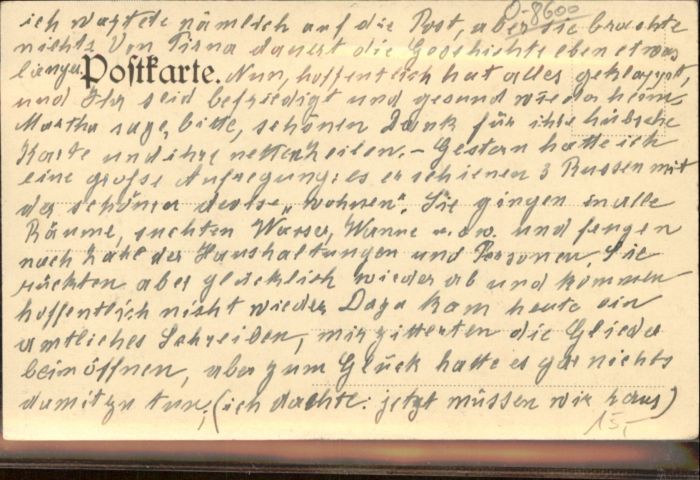 O-8600
ich wartete nämlich auf die Post, aber sie brachte
nichts. Von Pirna dauert die Geschichte eben etwas
länger. Postkarte. Nun, hoffentlich hat alles geklappt,
und Ihr seid befriedigt und gesund wieder heim.
Martha sage, bitte, schönen Dank für ihre hübsche
Karte und ihre netten Zeilen. – Gestern hatte ich
eine große Aufregung: es erschienen 3 Russen mit
der schönen „wohnen“. Sie gingen in alle
Räume, suchten Wasser, Wanne u.s.w. und fragen
nach Zahl der Haushaltungen und Personen. Sie
rückten aber glücklich wieder ab und kommen
hoffentlich nicht wieder. Dazu kam heute ein
amtliches Schreiben, mir zitterten die Glieder
beim öffnen, aber zum Glück hatte es gar nichts
damit zu tun, (ich dachte: jetzt müssen wir raus)
15,-